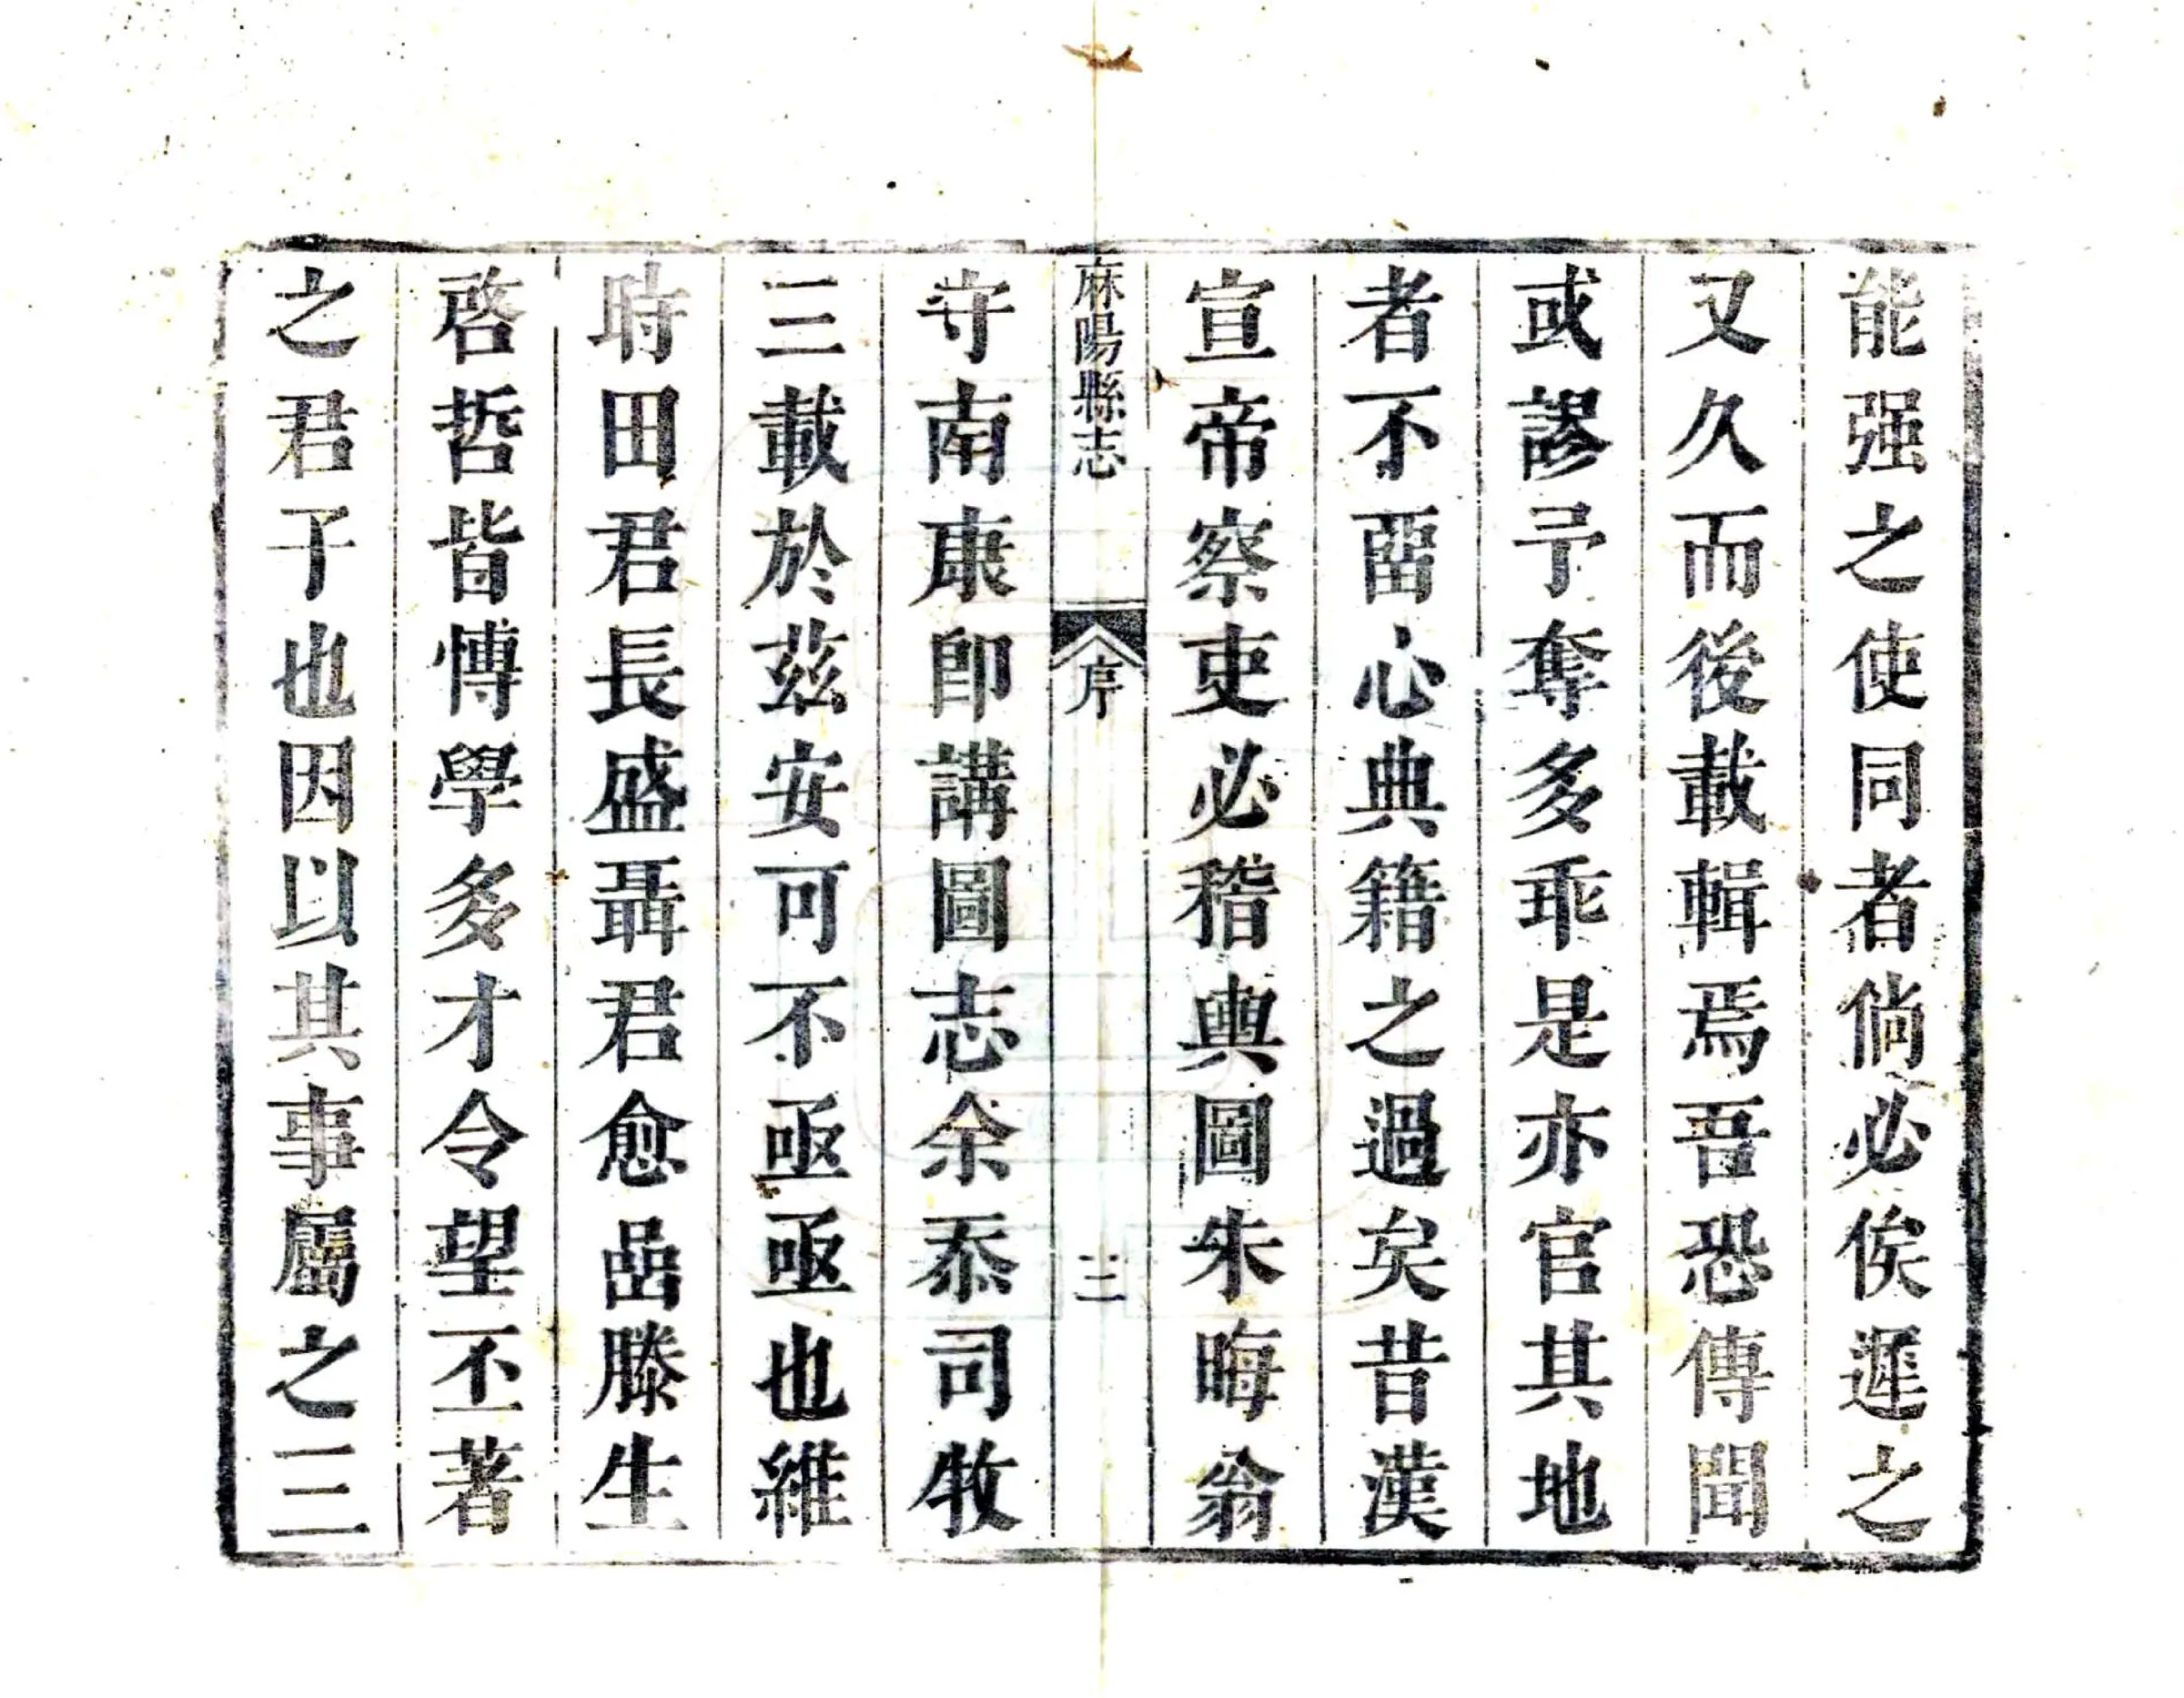 能强之使同者倘必俟遲之
又久而後載輯焉吾恐傳聞
或謬予奪多乖是亦官其地
者不畱心典籍之過矣昔漢
宣帝察吏必稽輿圖朱晦翁
麻陽縣志
序
三
守南康卽講圖志余忝司牧
三載於茲安可不亟亟也維
時田君長盛聶君愈嵒滕生
啓哲皆博學多才令望丕著
之君子也因以其事屬之三